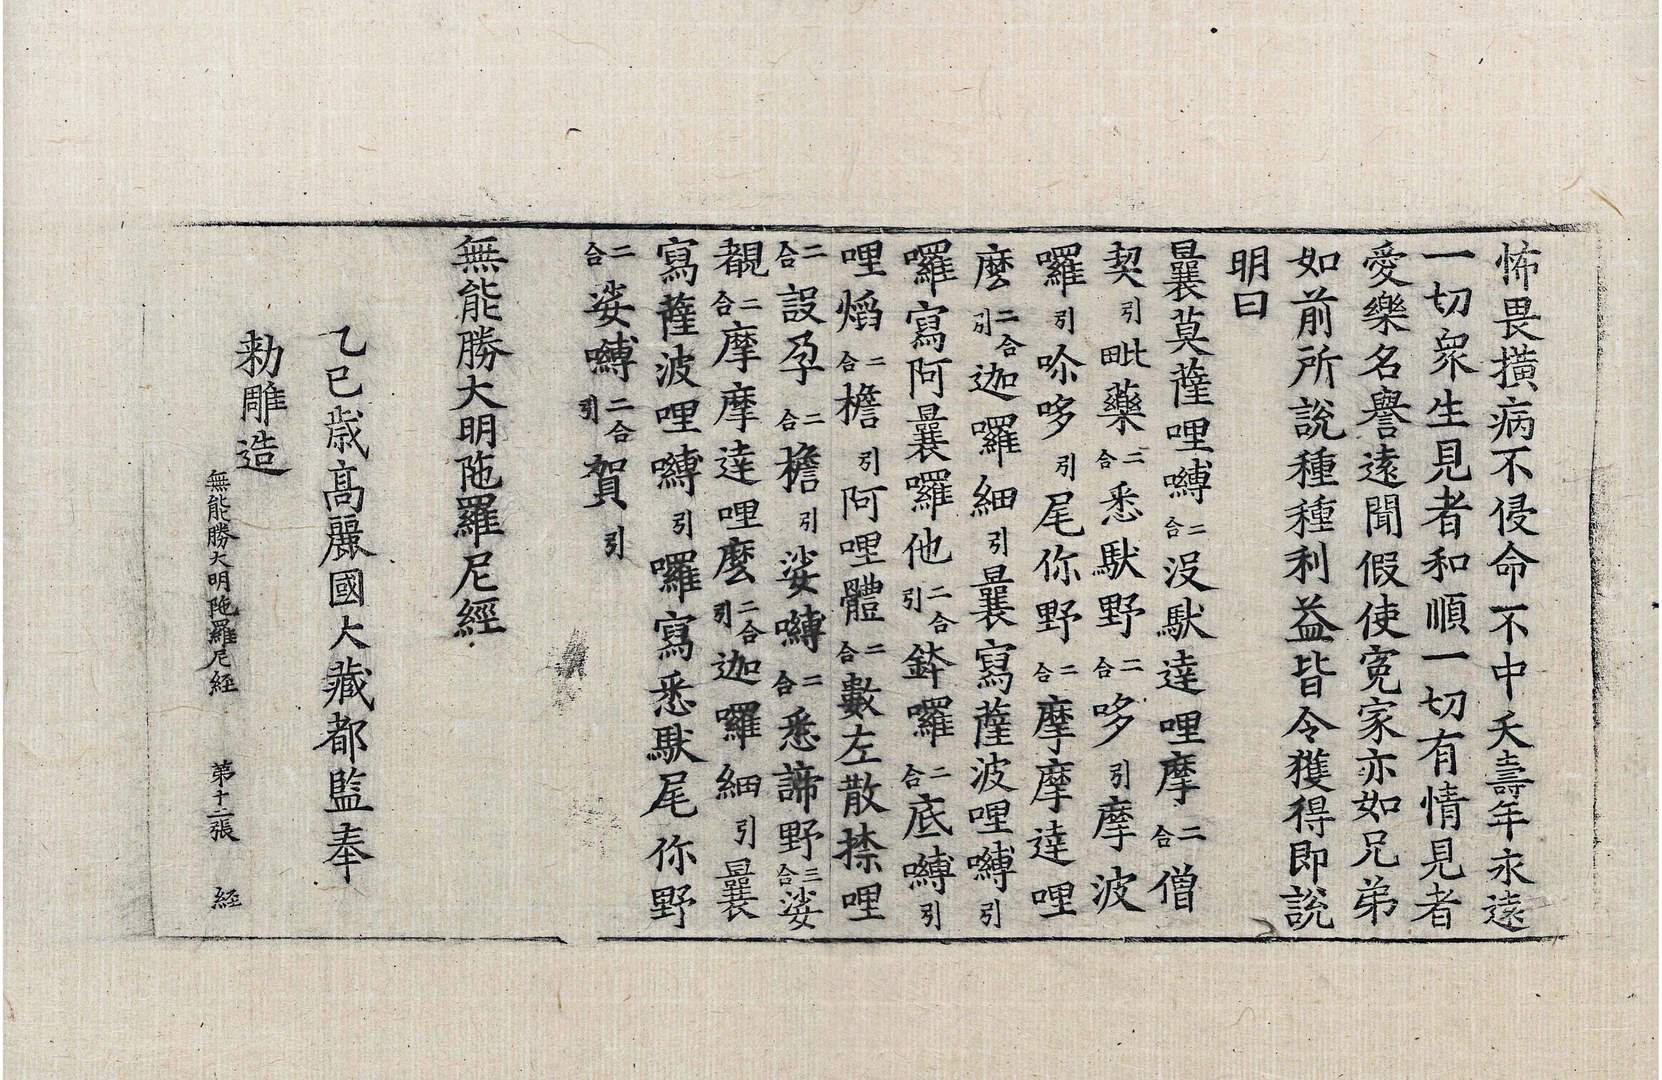 怖畏横病不侵命不中夭壽年永遠
一切衆生見者和順一切有情見者
愛樂名譽遠聞假使寃家亦如兄弟
如前所說種種利益皆令獲得即說
明曰
曩莫薩哩嚩二合没馱達哩摩二合僧
契引毗藥二合悉馱野二合哆引摩波
囉引哆引尾你野二合摩摩達哩
麽二合引迦囉細引曩寫薩波哩嚩引
囉寫阿曩囉他二合引鉢囉二合底嚩引
哩熖二合檐引阿哩體二合數左散捺哩
二合設孕二合檐引娑嚩二合悉諦野三合娑
覩二合摩摩達哩麽二合引迦囉細引曩
寫薩波哩嚩引囉寫悉馱尾你野
二合娑嚩二合引賀引
無能勝大明陁羅尼經
乙巳歳高麗國大藏都監奉
勅雕造
無能勝大明陁羅尼經 第十二張 經